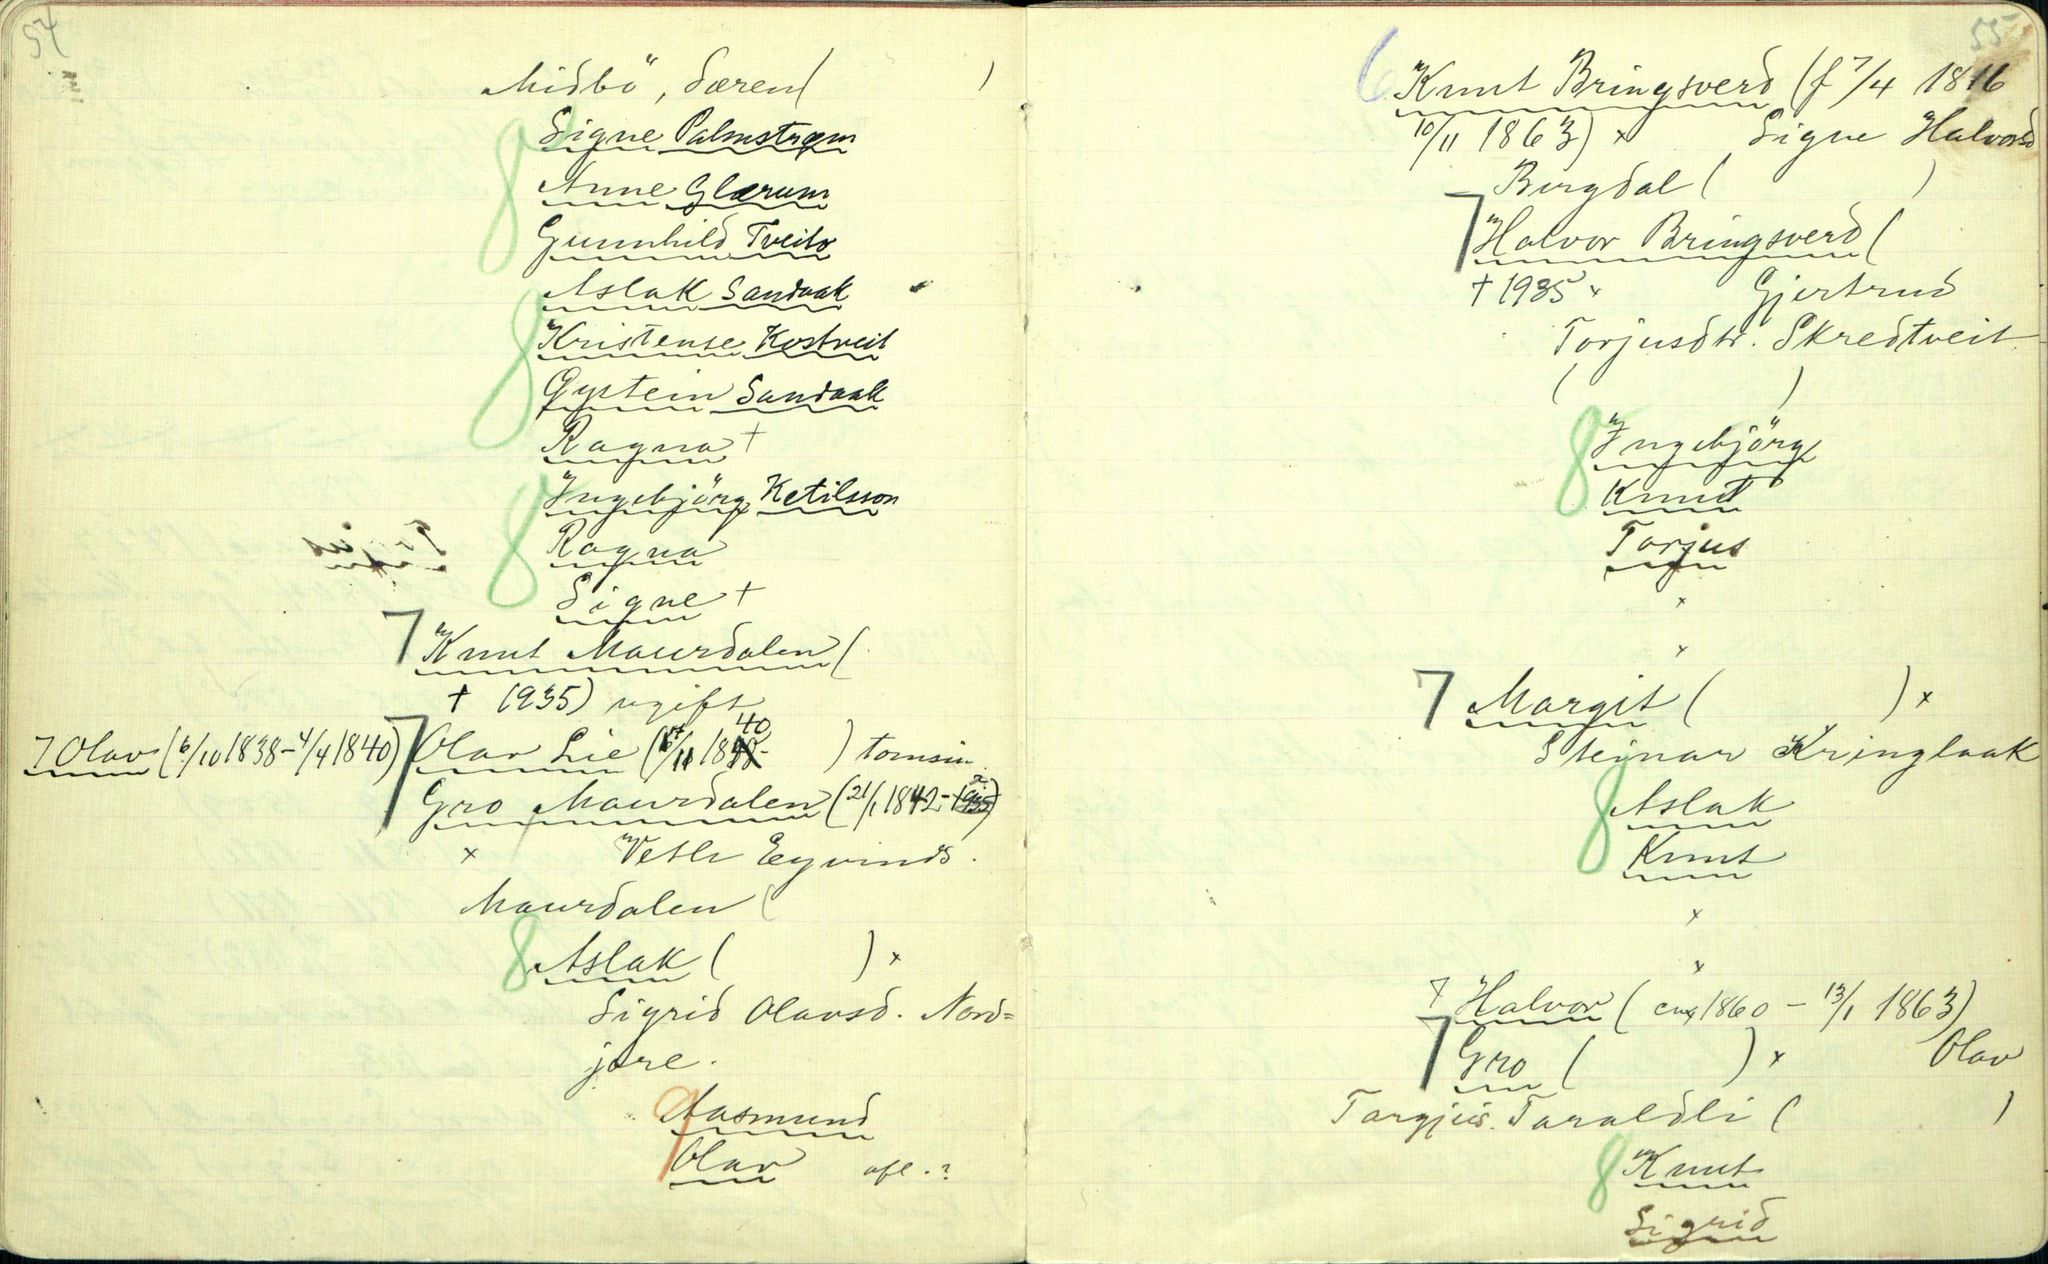 54
Midbö, Søren ( )
8 Signe Palmstrøm
Anne Glærum
Gunnhild Tveito
8 Aslak Sandaak
Kristense Kostveit
Øystein Sandaak
Ragna †
8 Ingebjörg Ketilsson
Ragna
Signe †
7 Knut Maurdalen (
† 1935) ugift
7 Olav (6/10 1838 - 4/4 1840) 7 Olav Lie ( /11 1840 - ) tomsin.
Gro Maurdalen (21/1 1842 -
x Vetle Eyvinds.
Maurdalen (
8 Aslak ( ) x
Sigrid Olavsd. Nord=
jore.
9 Aasmund
Olav ofl.?
55
6 Knut Bringsverd (f 7/4 1816
10/11 1863) x Signe Halvorsd
Burgdal ( )
7 Halvor Bringsverd (
† 1935 x Gjertrud
Torjusdtr. Skredtveit
( )
8 Ingebjörg
Knut
Torjus
x
x
7 Margit ( ) x
Steinar Kringlaak
8 Aslak
Knut
x
x
7 Halvor ( 1860 - 13/1 1863)
7 Gro ( ) x Olav
Torgjus. Taraldli ( )
8 Knut
Sigrid